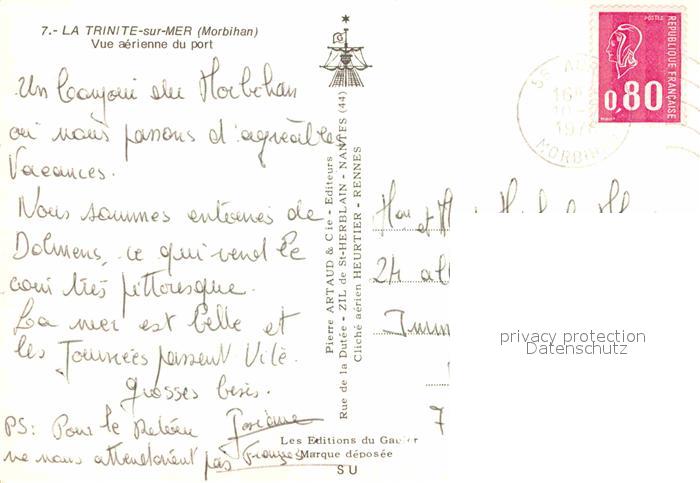 7.- LA TRINITE-sur-MER (Morbihan)
Vue aérienne du port
Un bonjour du Morbihan
où nous passons d'agréables
Vacances.
Nous sommes entourés de
Dolmens, ce qui rend le
coin très pittoresque.
La mer est belle et
les Journées passent vite.
grosses bises.
PS: Pour le
ne nous attendaient pas
Pierre ARTAUD & Cie - Editeurs
Rue de la Dutée - ZIL de St-HERBLAIN - NANTES (44)
Cliché aérien HEURTIER - RENNES
Les Editions du Gabier
Marque déposée
SU
POSTES
REPUBLIQUE FRANÇAISE
0,80
56
16H
10-
197
MORBIHAN
et
24 all
Imm
7
privacy protection
Datenschutz